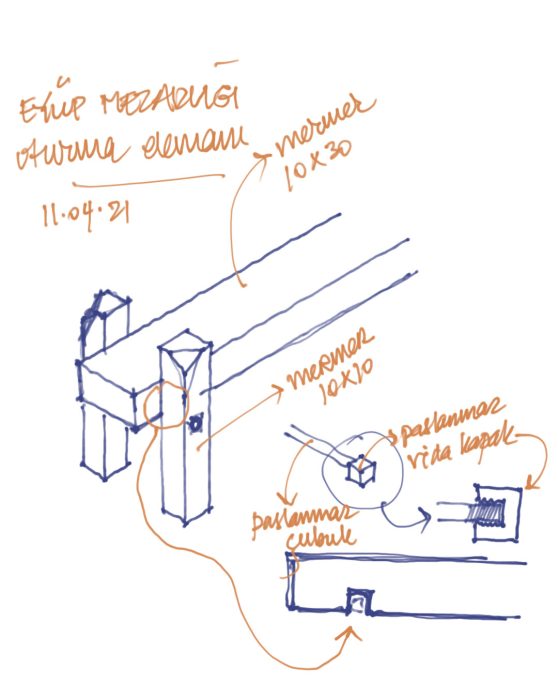 EYÜP MEZARLIĞI
oturma elemanı
11.04.21
mermer
10x30
mermer
10x10
paslanmaz
vida kapak
paslanmaz
çubuk